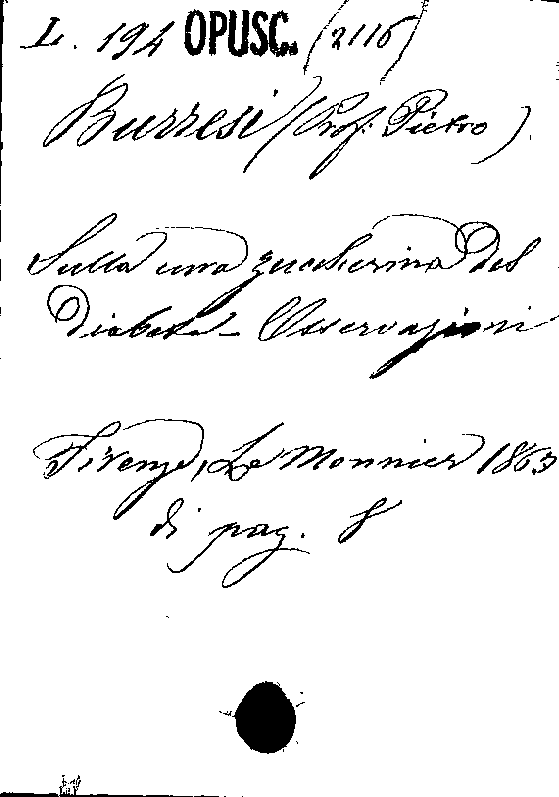 L. 194 OPUSC. (2116)
Burresi (Prof. Pietro).
Sulla urna zuccherina del
Diabete - Osservazioni
Firenze, Le Monnier 1863
di pag. 8